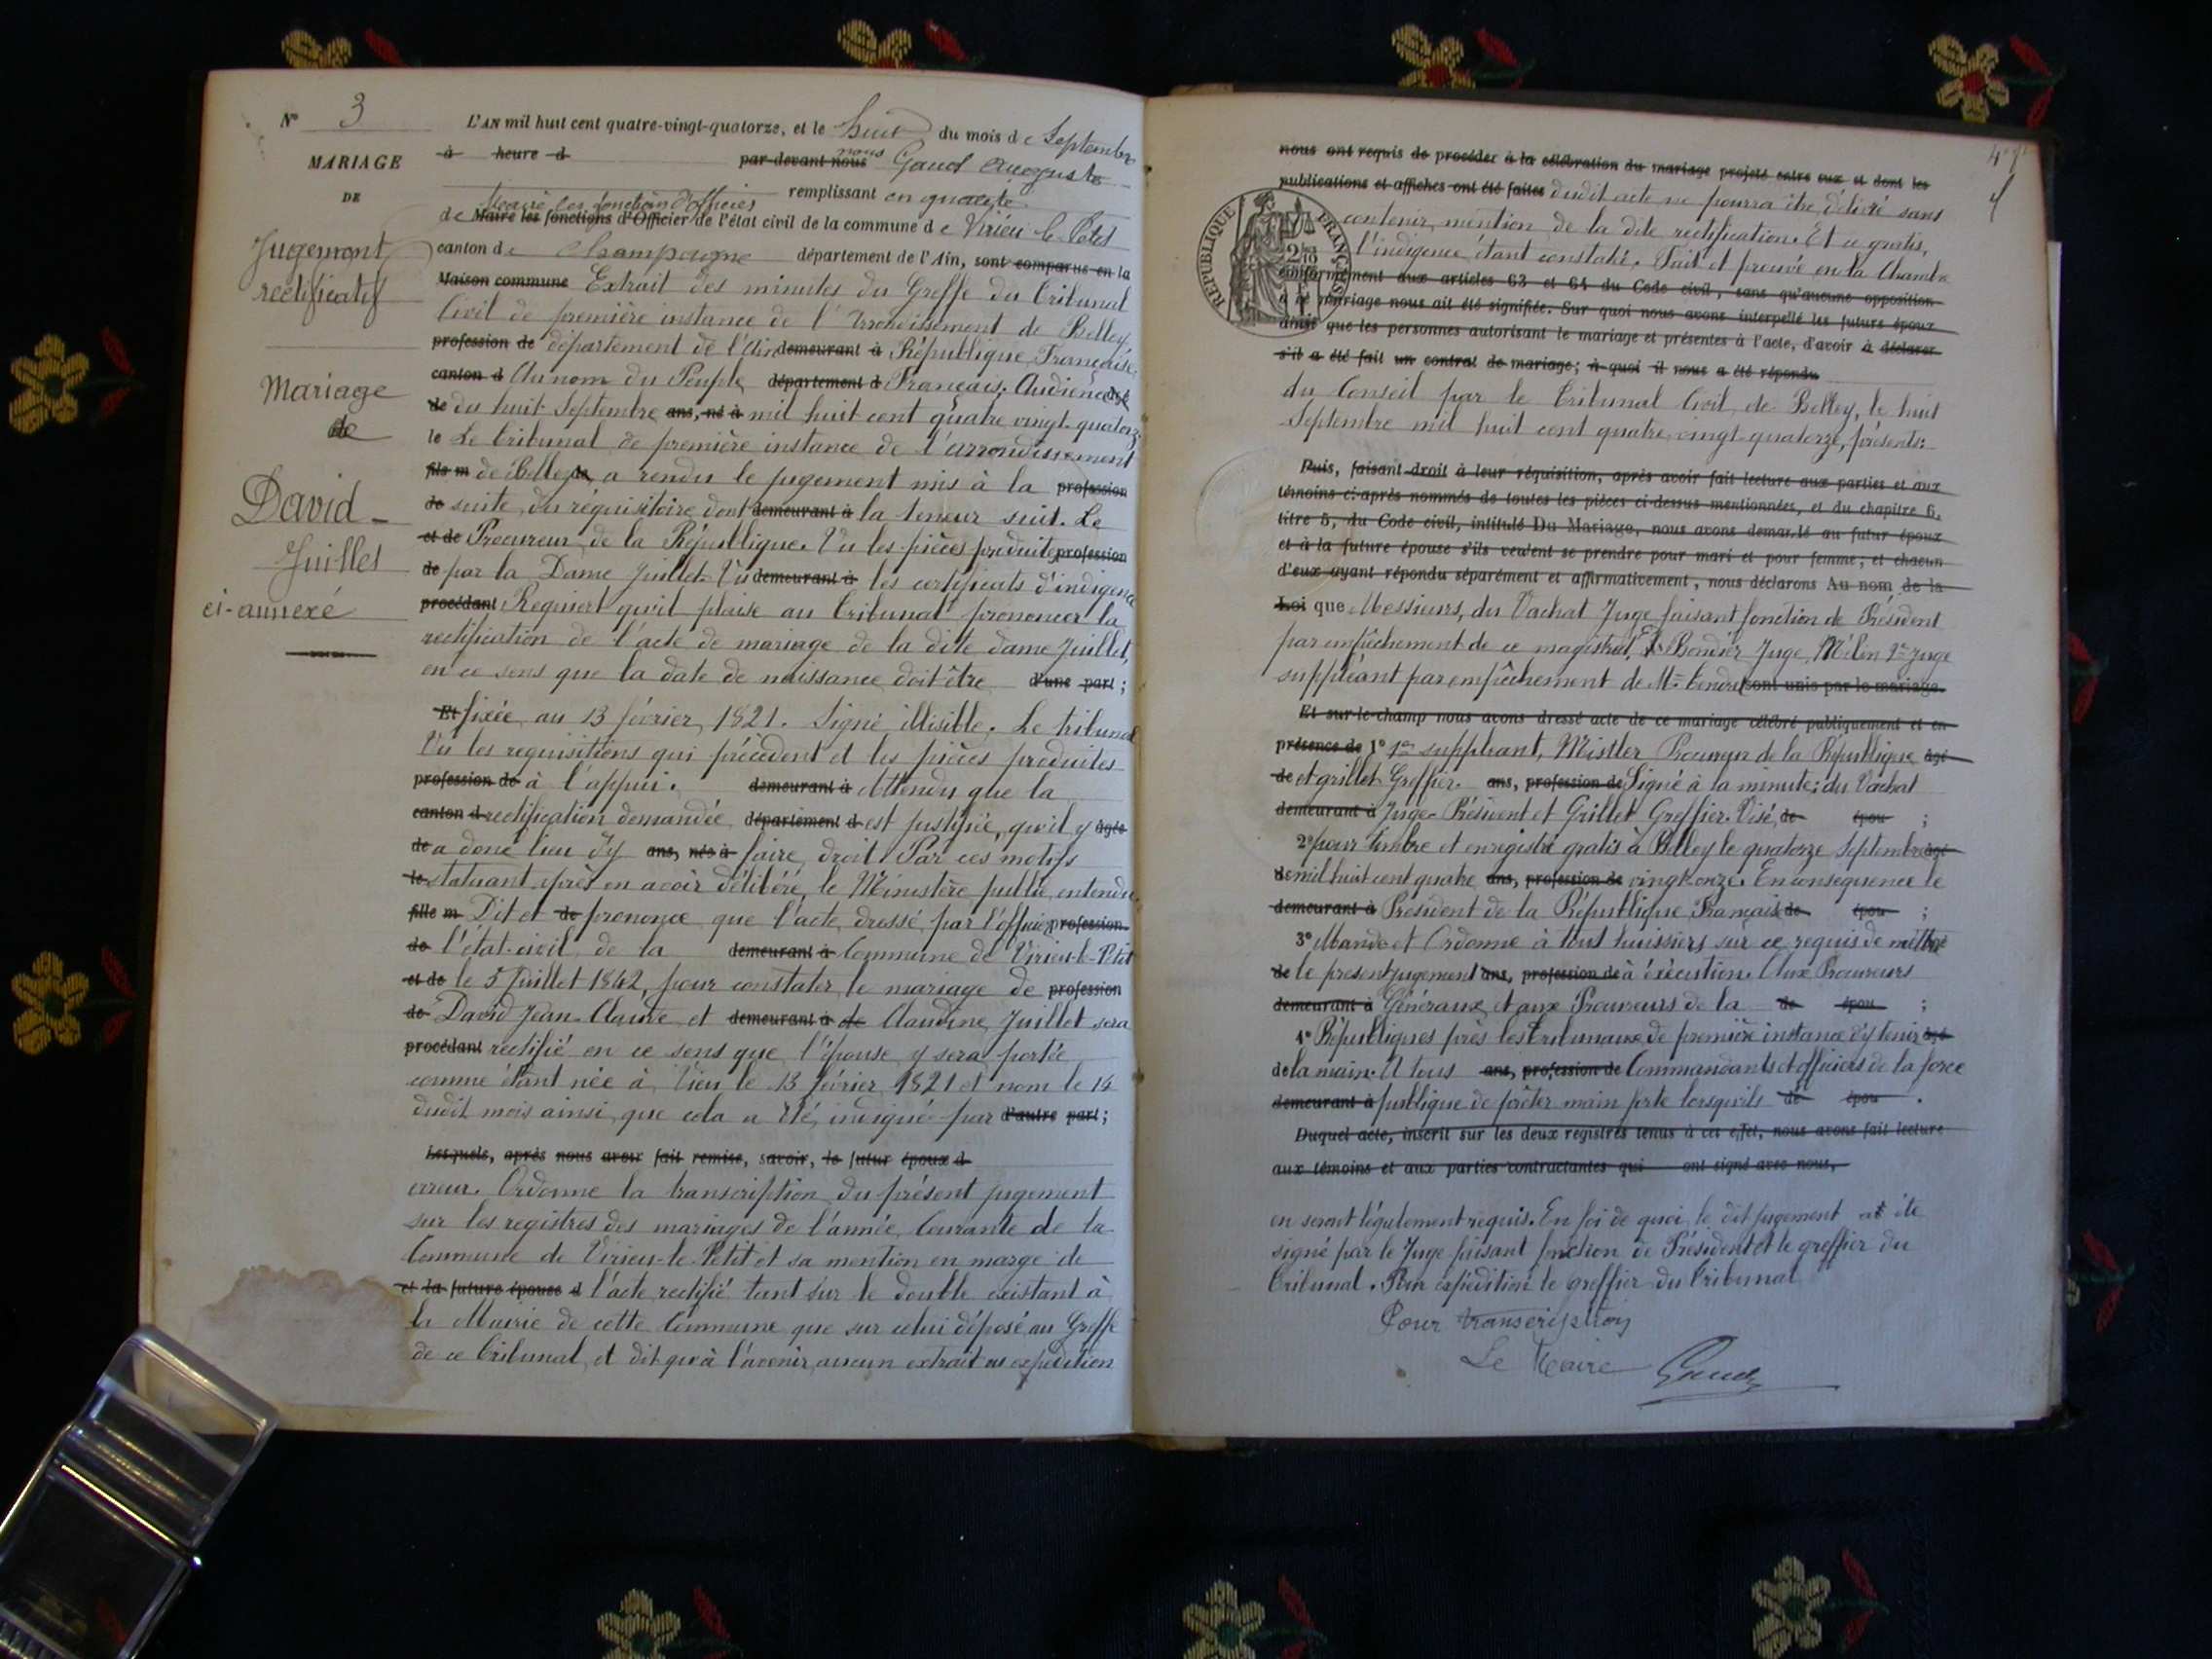 N° 3
MARIAGE
DE
Jugement
rectificatif
Mariage
de
David-
Juillet
ci-annexé
L'AN mil huit cent quatre-vingt-quatorze, et le huit du mois de Septembre
à heure d par-devant nous nous Gaud Auguste
remplissant en qualité
Maire les fonctions d'officier
de Maire les fonctions d'Officier de l'état civil de la commune de Virieu-le-Petit
canton de Champagne département de l'Ain, sont comparus en la
Maison commune Extrait des minutes du Greffe du Tribunal
Civil de première instance de l'Arrondissement de Belley
profession de département de l'Ain demeurant à République Française.
canton d Au nom du Peuple département d Français. Audience
de du huit Septembre ans, né à mil huit cent quatre vingt-quatorze
le Le Tribunal de première instance de l'arrondissement
fils m de Belley de a rendu le jugement mis à la profession
de suite du réquisitoire dont demeurant à la teneur suit. Le
et de Procureur de la République. Vu les pièces produites profession
de par la Dame Juillet. Vu demeurant à les certificats d'indigence
procédant Requiert qu'il plaise au Tribunal prononcer la
rectification de l'acte de mariage de la dite dame Juillet,
en ce sens que la date de naissance doit être d'une part;
Et fixée au 13 février 1821. Signé illisible. Le tribunal
Vu les requisitions qui précèdent et les pièces produites
profession de à l'appui. demeurant à Attendu que la
canton d rectification demandée département d est justifiée, qu'il y âgée
de a donc lieu d'y ans, née à faire droit. Par ces motifs
le statuant après en avoir délibéré, le Ministère public entendu,
fille m Dit et de prononce que l'acte dressé par l'officier profession
de l'état-civil de la demeurant à Commune de Virieu-le-Petit
et de le 5 Juillet 1842, pour constater le mariage de profession
de David Jean-Claude et demeurant à de Claudine Juillet sera
procédant rectifié en ce sens que l'épouse y sera portée
comme étant née à Vieu le 13 février 1821 et nom le 14
dudit mois ainsi que cela a été indiqué par d'autre part;
Lesquels, après nous avoir fait remise, savoir, le futur époux d
erreur. Ordonne la transcription du présent jugement
sur les registres des mariages de l'année courante de la
Commune de Virieu-le-Petit et sa mention en marge de
et la future épouse d l'acte rectifié tant sur le double existant à
la Mairie de cette Commune que sur celui déposé au Greffe
de ce Tribunal, et dit qu'à l'avenir aucun extrait ou expédition
nous ont requis de procéder à la célébration du mariage projeté entre eux et dont les
publications et affiches ont été faites dudit acte ne pourra être délivré sans
contenir mention de la dite rectification. Et ce gratis,
l'indigence étant constatée. Fait et prouvé en la Chambre
RÉPUBLIQUE FRANÇAISE
conformément aux articles 63 et 64 du Code civil, sans qu'aucune opposition
à ce mariage nous ait été signifiée. Sur quoi nous avons interpellé les futurs époux
ainsi que les personnes autorisant le mariage et présentes à l'acte, d'avoir à déclarer
s'il a été fait un contrat de mariage; à quoi il nous a été répondu
du Conseil par le Tribunal Civil de Belley, le huit
Septembre mil huit cent quatre vingt-quatorze, présents:
Puis, faisant droit à leur réquisition, après avoir fait lecture aux parties et aux
témoins ci-après nommés de toutes les pièces ci-dessus mentionnées, et du chapitre 6,
titre 5, du Code civil, intitulé Du Mariage, nous avons demandé au futur époux
et à la future épouse s'ils veulent se prendre pour mari et pour femme; et chacun
d'eux ayant répondu séparément et affirmativement, nous déclarons Au nom de la
Loi que Messieurs, du Vachat Juge faisant fonction de Président
par empêchement de ce magistrat, Bondier Juge, Milon 2e Juge
suppléant par empêchement de Mr sont unis par le mariage.
Et sur-le-champ nous avons dressé acte de ce mariage célébré publiquement et en
présence de 1° 1er suppléant, Mistler Procureur de la République âgé
de et Grillet Greffier. ans, profession de Signé à la minute: du Vachat
demeurant à Juge-Président et Grillet Greffier. Visé de épou ;
2° pour timbre et enregistré gratis à Belley le quatorze Septembre âgé
de mil huit cent quatre ans, profession de vingt-onze. En conséquence le
demeurant à Président de la République Française de épou ;
3° Mande et Ordonne à tous huissiers sur ce requis de mettre
de le présent jugement ans, profession de à éxécution. Aux Procureurs
demeurant à Généraux et aux Procureurs de la de épou ;
4° Républiques près les Tribunaux de première instance d'y tenir âgé
de la main. A tous ans, profession de Commandants et officiers de la force
demeurant à publique de prêter main forte lorsqu'ils de épou .
Duquel acte, inscrit sur les deux registres tenus à cet effet, nous avons fait lecture
aux témoins et aux parties contractantes qui ont signé avec nous,
en seront légalement requis. En foi de quoi, le dit jugement at été
signé par le Juge faisant fonction de Président et le greffier du
Tribunal. Pour expédition le greffier du Tribunal
Pour transcription
Le Maire Gaud